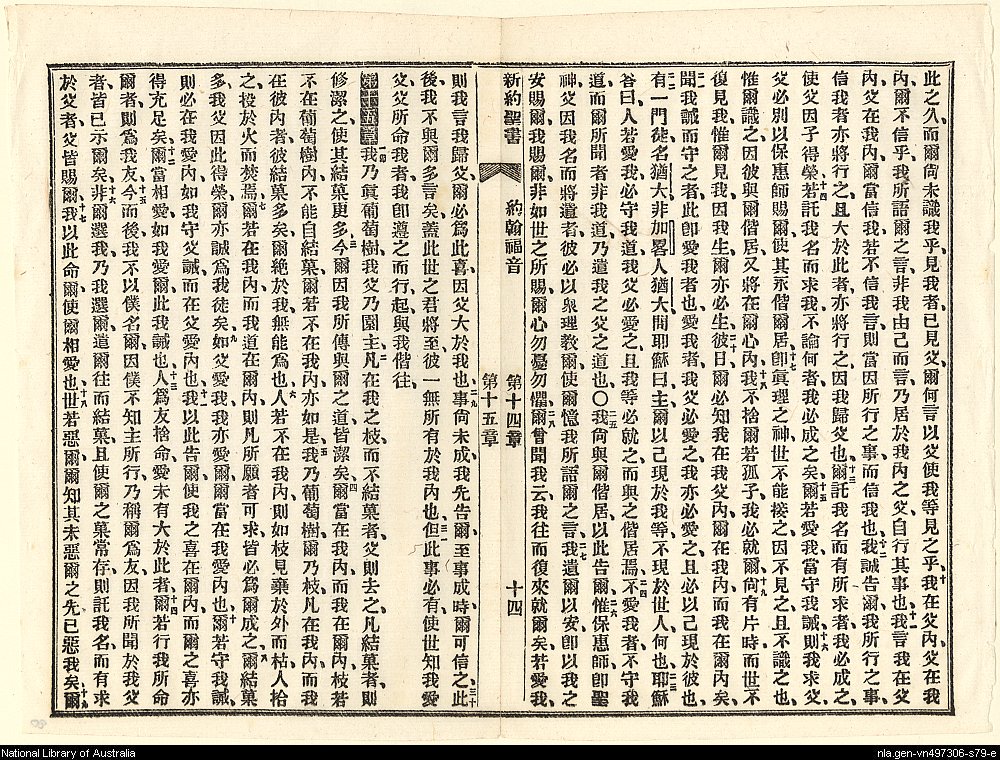 此之久而爾尚未識我乎見我者已見父爾何言以父使我等見之乎十我在父內父在我
內爾不信乎我所語爾之言非我由己而言乃居於我內之父自行其事也十一我言我在父
內父在我內爾當信我若不信我言則當因所行之事而信我也十二我誠告爾我所行之事
信我者亦將行之且大於此者亦將行之因我歸父也十三爾託我名而有所求者我必成之
使父因子得榮十四若託我名而求我不論何者我必成之矣十五爾若愛我當守我誡十六則我求父
父必別以保惠師賜爾使其永偕爾居十七卽眞理之神世不能接之因不見之且不識之也
惟爾識之因彼與爾偕居又將在爾心內十八我不捨爾若孤子我必就爾十九尚有片時而世不
復見我惟爾見我因我生爾亦必生二十彼日爾必知我在我父內爾在我內而我在爾內矣
二一聞我誡而守之者此卽愛我者也愛我者我父必愛之我亦必愛之且必以己現於彼也
二二有一門徒名猶大非加畧人猶大問耶穌曰主爾以己現於我等不現於世人何也二三耶穌
答曰人若愛我必守我道我父必愛之且我等必就之而與之偕居焉二四不愛我者不守我
道而爾所聞者非我道乃遣我之父之道也〇二五我尚與爾偕居以此告爾二六惟保惠師卽聖
神父因我名而將遣者彼必以衆理教爾使爾憶我所語爾之言二七我遺爾以安卽以我之
安賜爾我賜爾非如世之所賜爾心勿憂勿懼二八爾曾聞我云我往而復來就爾矣若愛我
新約聖書 約翰福音 第十四章 十四
第十五章
則我言我歸父爾必爲此喜因父大於我也二九事尚未成我先告爾至事成時爾可信之三十此
後我不與爾多言矣蓋此世之君將至彼一無所有於我內也三一但此事必有使世知我愛
父父所命我者我卽遵之而行起與我偕往
第十五章一節我乃眞葡萄樹我父乃園主二凡在我之枝而不結菓者父則去之凡結菓者則
修潔之使其結菓更多三今爾因我所傳與爾之道皆潔矣四爾當在我內而我在爾內枝若
不在葡萄樹內不能自結菓爾若不在我內亦如是五我乃葡萄樹爾乃枝凡在我內而我
在彼內者彼結菓多矣爾絶於我無能爲也六人若不在我內則如枝見棄於外而枯人拾
之投於火而焚焉七爾若在我內而我道在爾內則凡所願者可求皆必爲爾成之八爾結菓
多我父因此得榮爾亦誠爲我徒矣九如父愛我我亦愛爾爾當在我愛內也十爾若守我誡
則必在我愛內如我守父誡而在父愛內也十一我以此告爾使我之喜在爾內而爾之喜亦
得充足矣十二爾當相愛如我愛爾此我誡也十三人爲友捨命愛未有大於此者十四爾若行我所命
爾者則爲我友十五今而後我不以僕名爾因僕不知主所行乃稱爾爲友因我所聞於我父
者皆已示爾矣十六非爾選我乃我選爾遣爾往而結菓且使爾之菓常存則託我名而有求
於父者父皆賜爾十七我以此命爾使爾相愛也十八世若惡爾爾知其未惡爾之先已惡我矣十九爾
National Library of Australia
nla.gen-vn497306-s79-e